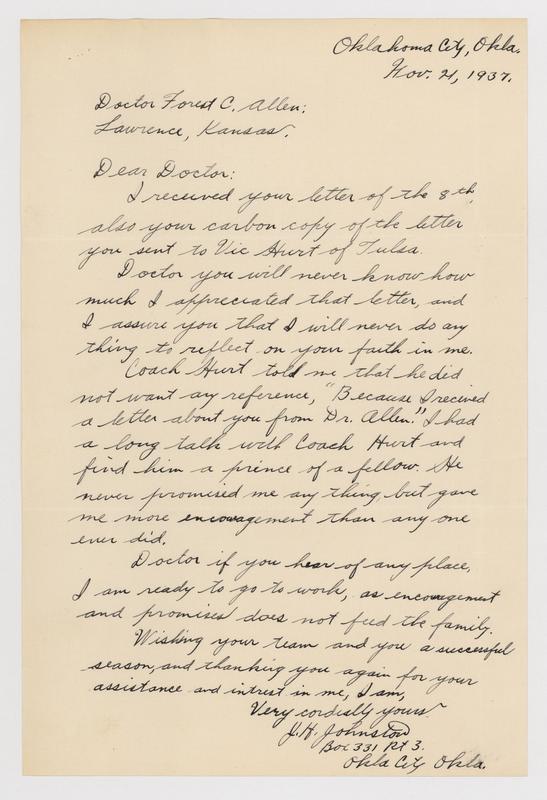 Oklahoma City, Okla.
Nov. 21, 1937.
Doctor Forest C. Allen:
Lawrence, Kansas.
Dear Doctor:
I received your letter of the 8th,
also your carbon copy of the letter
you sent to Vic Hurt of Tulsa.
Doctor you will never know how
much I appreciated that letter, and
I assure you that I will never do any
thing to reflect on your faith in me.
Coach Hurt told me that he did
not want any reference, "Because I received
a letter about you from Dr. Allen." I had
a long talk with Coach Hurt and
find him a prince of a fellow. He
never promised me any thing, but gave
me more encouragement than any one
ever did.
Doctor if you hear of any place,
I am ready to go to work, as encouragement
and promises does not feed the family.
Wishing your team and you a successful
season, and thanking you again for your
assistance and intrest in me, I am,
Very cordially yours
J.H. Johnston
Box 331 Rt 3.
Okla City Okla.